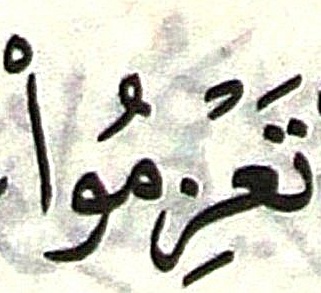 تَعْزِمُوا۟